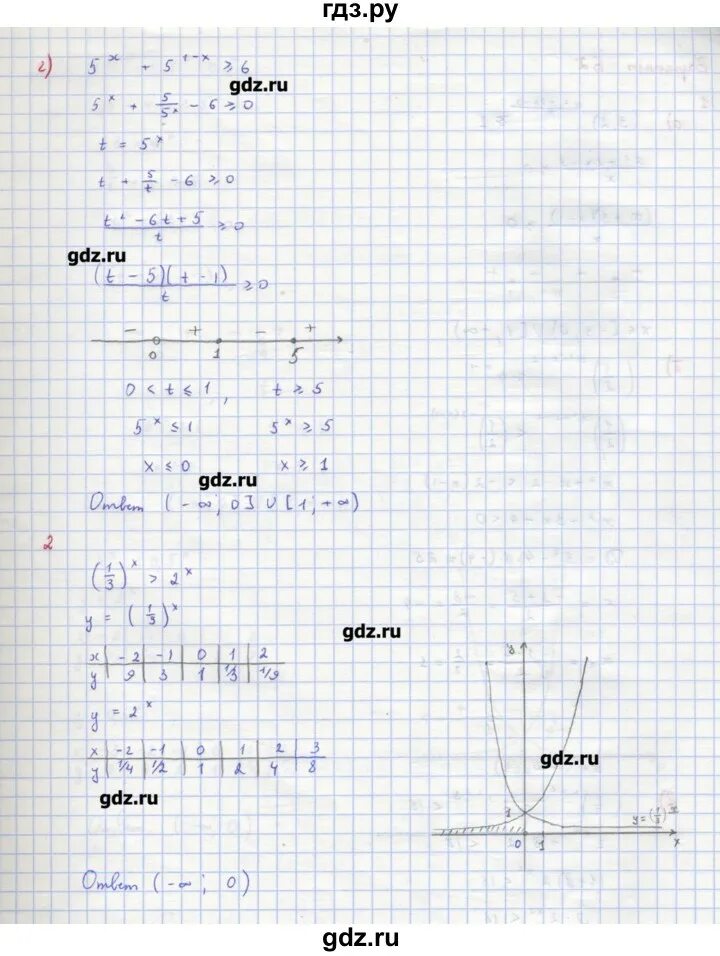 гдз.ру
г) 5^x + 5^(1-x) ≥ 6
gdz.ru
5^x + 5/5^x - 6 ≥ 0
t = 5^x
t + 5/t - 6 ≥ 0
(t² - 6t + 5)/t ≥ 0
gdz.ru
((t - 5)(t - 1))/t ≥ 0
- + - +
0 1 5
0 < t ≤ 1, t ≥ 5
5^x ≤ 1 5^x ≥ 5
x ≤ 0 x ≥ 1
gdz.ru
Ответ (-∞; 0] ∪ [1; +∞)
2
(1/3)^x > 2^x
y = (1/3)^x
gdz.ru
x | -2 | -1 | 0 | 1 | 2
y | 9 | 3 | 1 | 1/3 | 1/9
y = 2^x
x | -2 | -1 | 0 | 1 | 2 | 3
y | 1/4 | 1/2 | 1 | 2 | 4 | 8
gdz.ru
y
gdz.ru
1
y = (1/3)^x
0 1 x
Ответ (-∞; 0)
gdz.ru